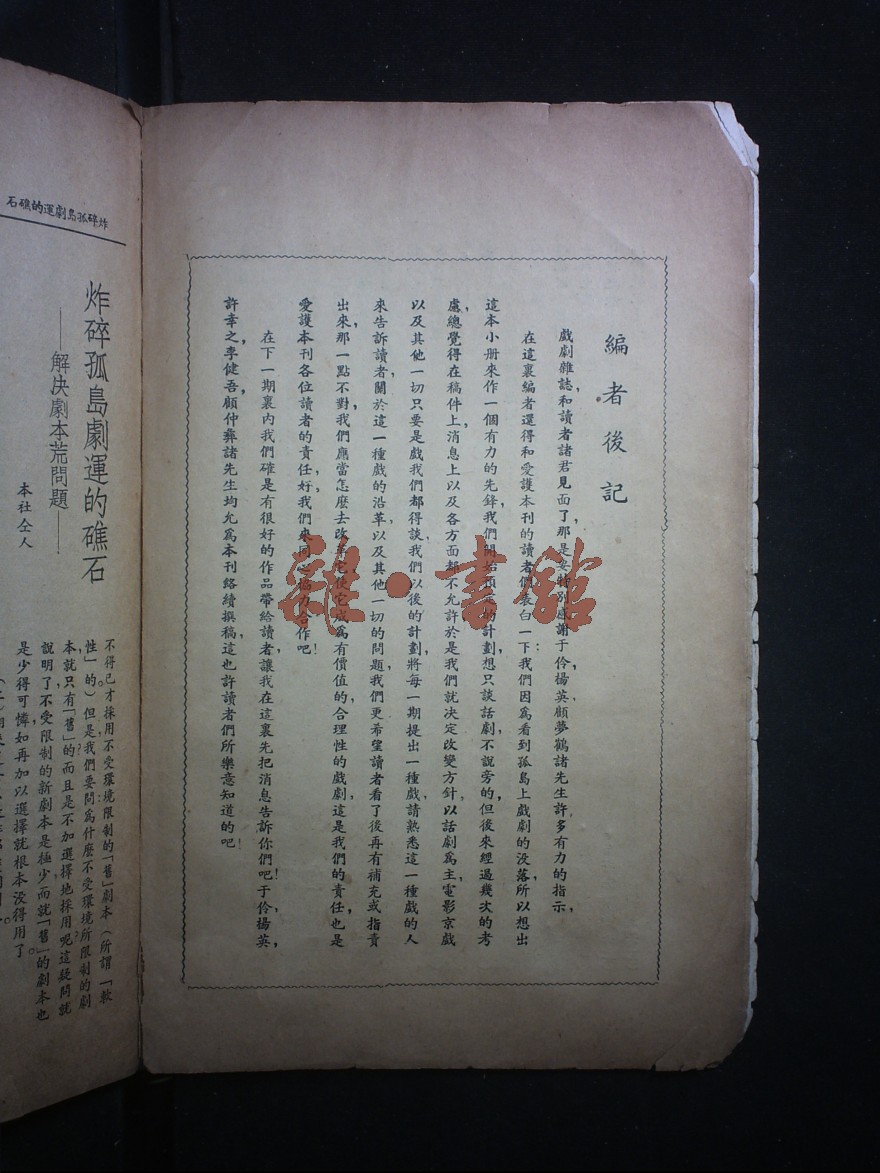 編者後記
戲劇雜誌和讀者諸君見面了，那是要特別感謝于伶揚英顧夢鶴諸先生許多有力的指示，
在這裏編者還得和愛護本刊的讀者們表白一下：我們因爲看到孤島上戲劇的没落，所以想出
這本小册來作一個有力的先鋒，我們開始預的計劃，想只談話劇，不說旁的，但後來經過幾次的考
慮，總覺得在稿件上，消息上，以及各方面都不允許，於是我們就決定改變方針，以話劇爲主，電影京戲
以及其他一切只要是戲我們都得談，我們以後的計劃，將每一期提出一種戲，請熟悉這一種戲的人
來告訴讀者，關於這一種戲的沿革以及其他一切的問題，我們更希望讀者看了後再有補充或指責
出來，那一點不對，我們應當怎麽去改革它，使它成爲有價值的合理性的戲劇，這是我們的責任，也是
愛護本刊各位讀者的責任，好，我們來同心協力合作吧！
在下一期裏内我們確是有很好的作品帶給讀者，讓我在這裏先把消息告訴你們吧！于伶揚英，
許幸之，李健吾，顧仲彝諸先生均允爲本刊絡續撰稿，這也許讀者們所樂意知道的吧！
雜·書館
炸碎孤島劇運的礁石
炸碎孤島劇運的礁石
——解決劇本荒問題——
本社仝人
不得已才採用不受環境限制的「舊」劇本（所謂「軟
性」的）但是我們要問爲什麽不受環境所限制的劇
本就只有「舊」的而且是不加選擇地採用呢？這疑問就
說明了不受限制的新劇本是極少而就「舊」的劇本也
是少得可憐如再加以選擇就根本没得用了。